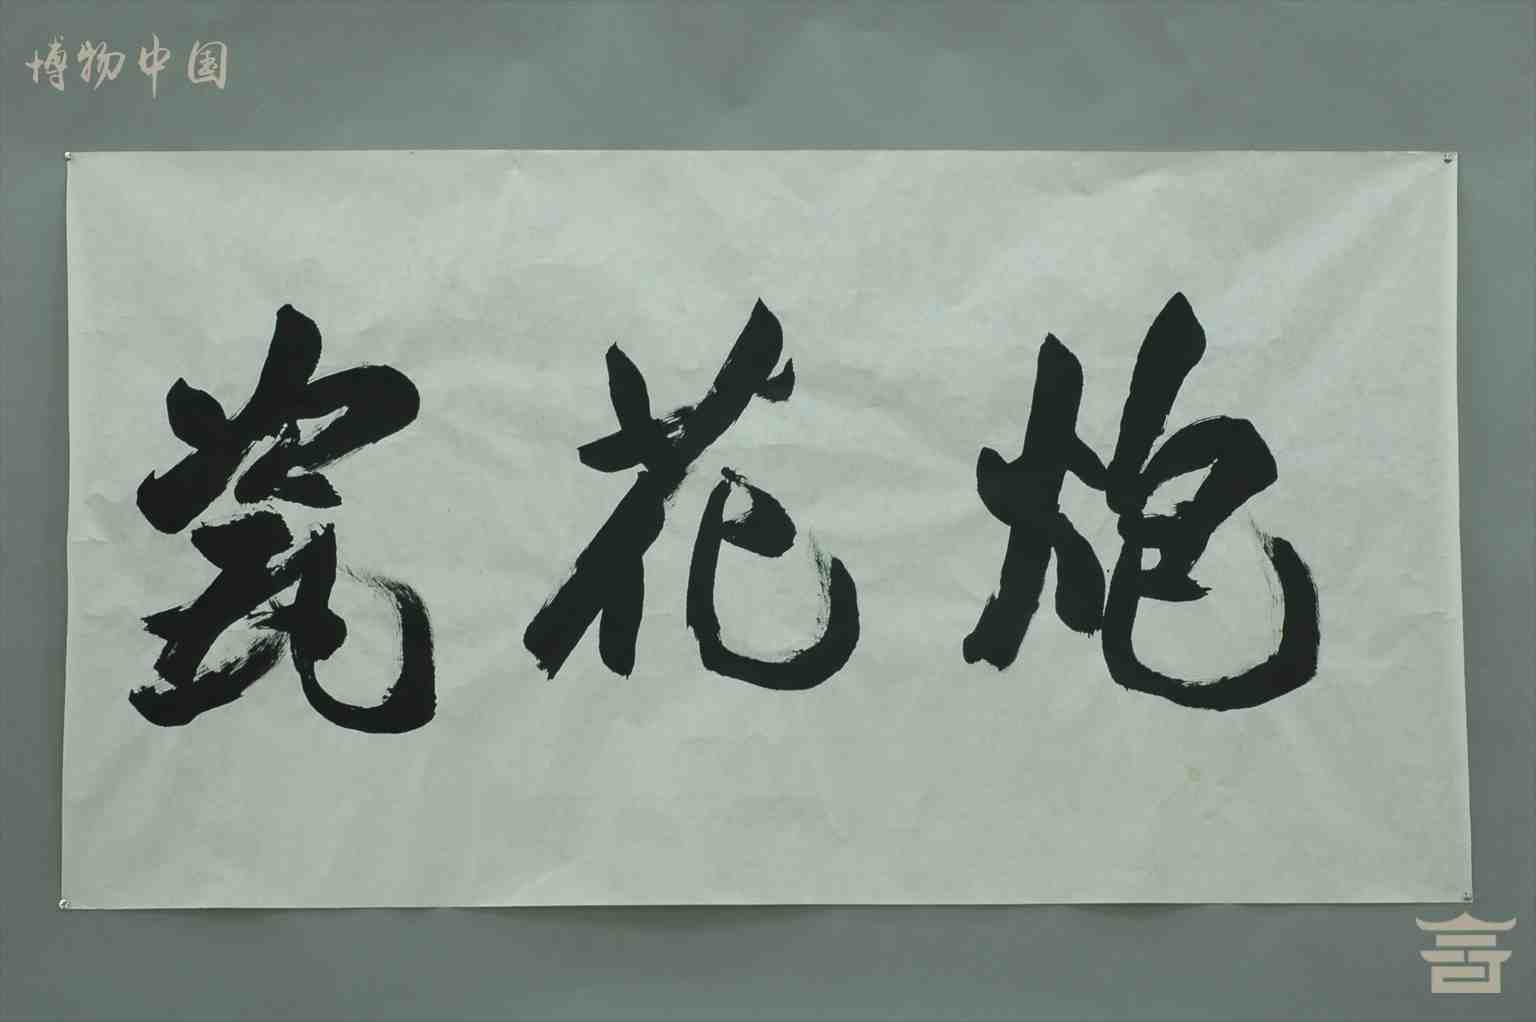 博物中国
瓷花炮